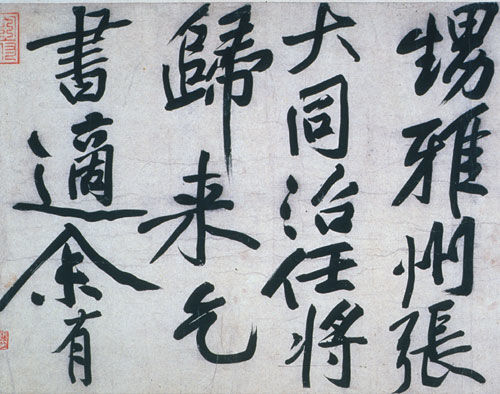 甥雅州張
大同治任將
歸来乞
書適余有